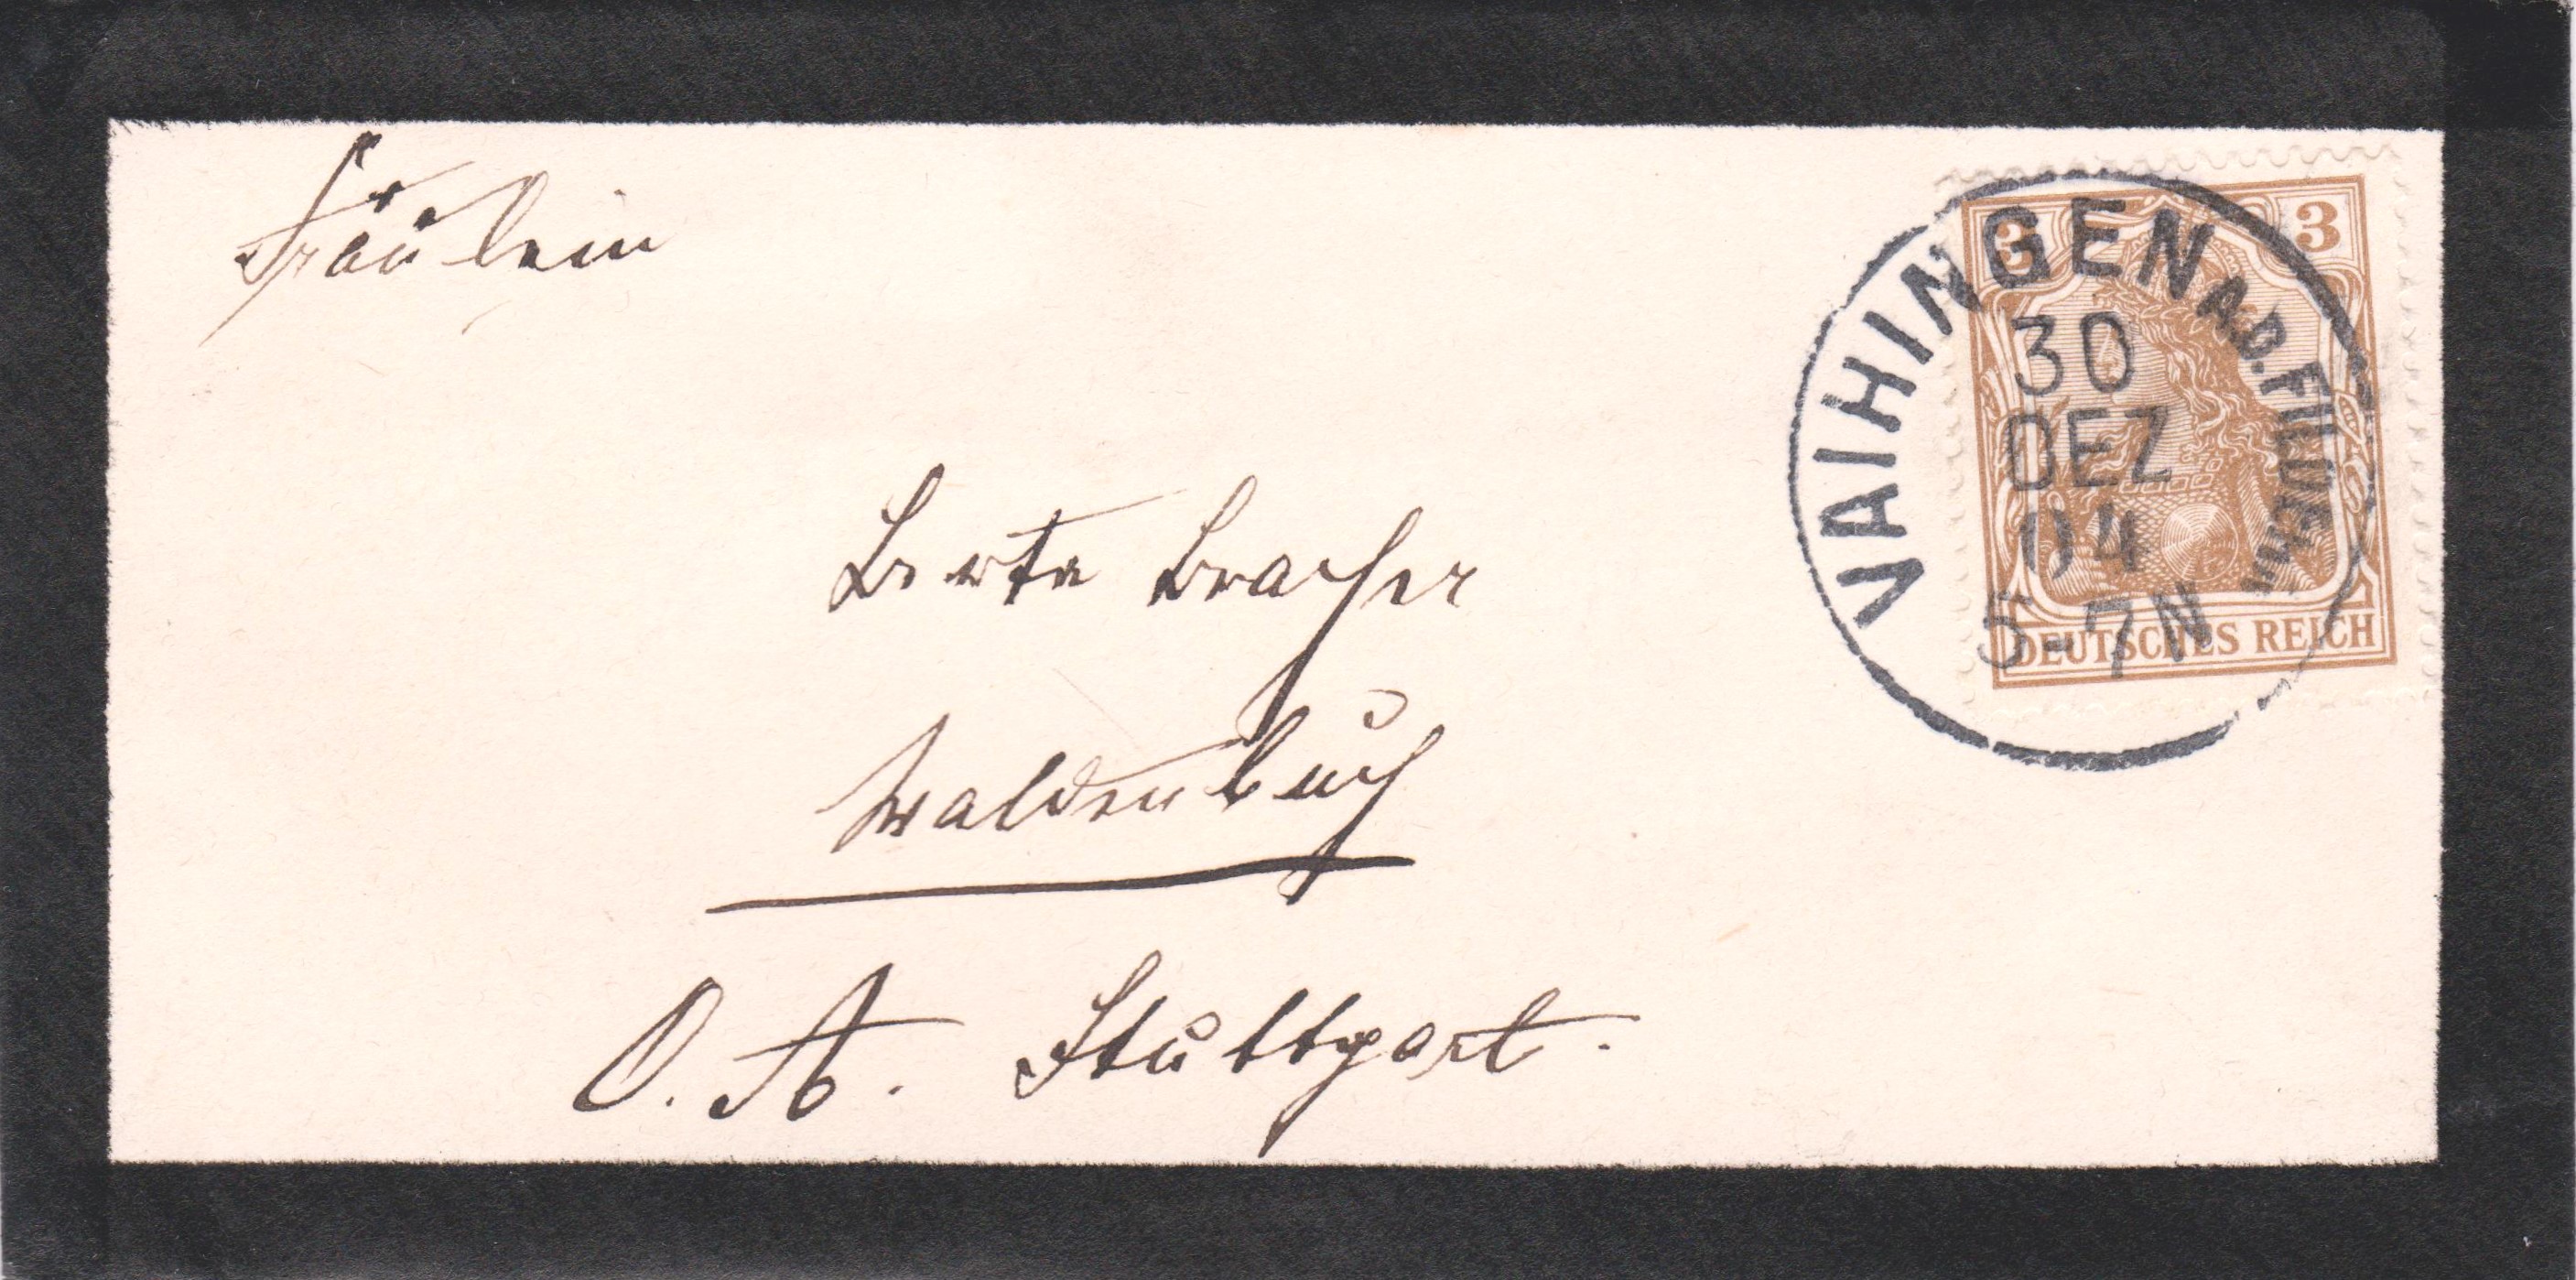 Fräulein
Berta Bracher
Waldenbuch
O. A. Stuttgart.
3 3
DEUTSCHES REICH
VAIHINGEN A.D. FILDERN
30
DEZ
04
5-7N